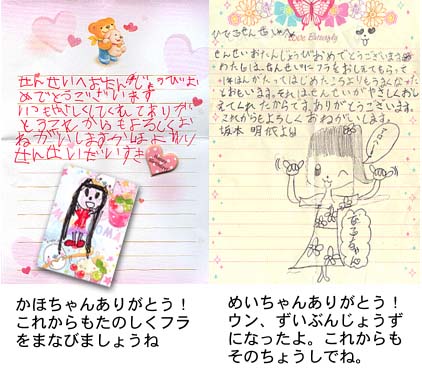 せんせいへおたんじょうびお
めでとうございます
いつもやさしくしてくれてありが
とうこれからもよろしくお
ねがいします かほより
せんせいだいすき
かほちゃんありがとう！
これからもたのしくフラ
をまなびましょうね
せんせいおたんじょうびおめでとうございます
わたしは、せんせいにフラをおしえてもらって
1年はんがたってはじめたころよりもうまくなった
とおもいます。それはせんせいがやさしくおし
えてくれたからです。ありがとうございます。
これからもよろしくおねがいします。
坂本 明依より
アロハー
めいちゃんありがとう！
ウン、ずいぶんじょうず
になったよ。これからも
そのちょうしでね。